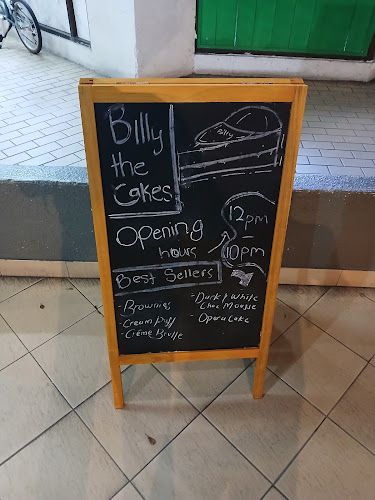 Billy
the
Cakes
Billy
Opening
hours
12pm
10pm
Best Sellers
- Brownies
- Cream Puff
- Créme Brulle
- Dark & White
Choc Mousse
- Opera Cake